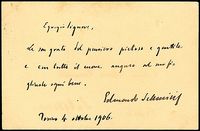 Egregio Signore,
Le son grato del pensiero pietoso e gentile
e con tutto il cuore auguro ad
ogni bene.
Edmondo
Torino 4 ottobre 1906.